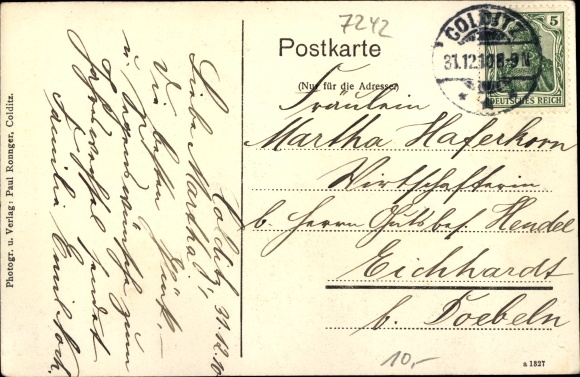 7242
Postkarte
(Nur für die Adresse)
COLDITZ
31.12.10 8-9 N
5
DEUTSCHES REICH
Fräulein
Martha Haferkorn
Wirtschafterin
b. Herrn Gutsbes. Hendel
Eichhardt
b. Doebeln
10,-
a 1327
Colditz, 31.12.10
Liebe Martha,
Die besten Glück-
u. Segenswünsche zum
Jahreswechsel sendet
Familie Emil Koch.
Photogr. u. Verlag: Paul Ronnger, Colditz.